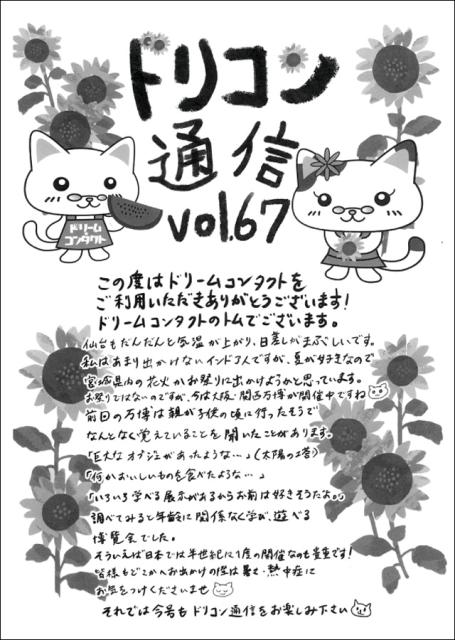 ドリコン
通信
vol.67
ドリーム
コンタクト
この度はドリームコンタクトを
ご利用いただきありがとうございます!
ドリームコンタクトのトムでございます。
仙台もだんだんと気温が上がり、日差しがまぶしいです。
私はあまり出かけないインドア人ですが、夏が好きなので
宮城県内の花火かお祭りに出かけようかと思っています。
お祭りではないのですが、今は大阪・関西万博が開催中ですね
前回の万博は親が子供の頃に行ったそうで
なんとなく覚えていることを聞いたことがあります。
「巨大なオブジェがあったような…」(太陽の塔)
「何かおいしいものを食べたような…」
「いろいろ学べる展示があるからお前は好きそうだよ。」
調べてみると年齢に関係なく学び、遊べる
博覧会でした。
そういえば日本では半世紀に1度の開催なのも貴重です!
皆様もどこかへお出かけの際は暑さ・熱中症に
お気をつけくださいませ
それでは今号もドリコン通信をお楽しみ下さい